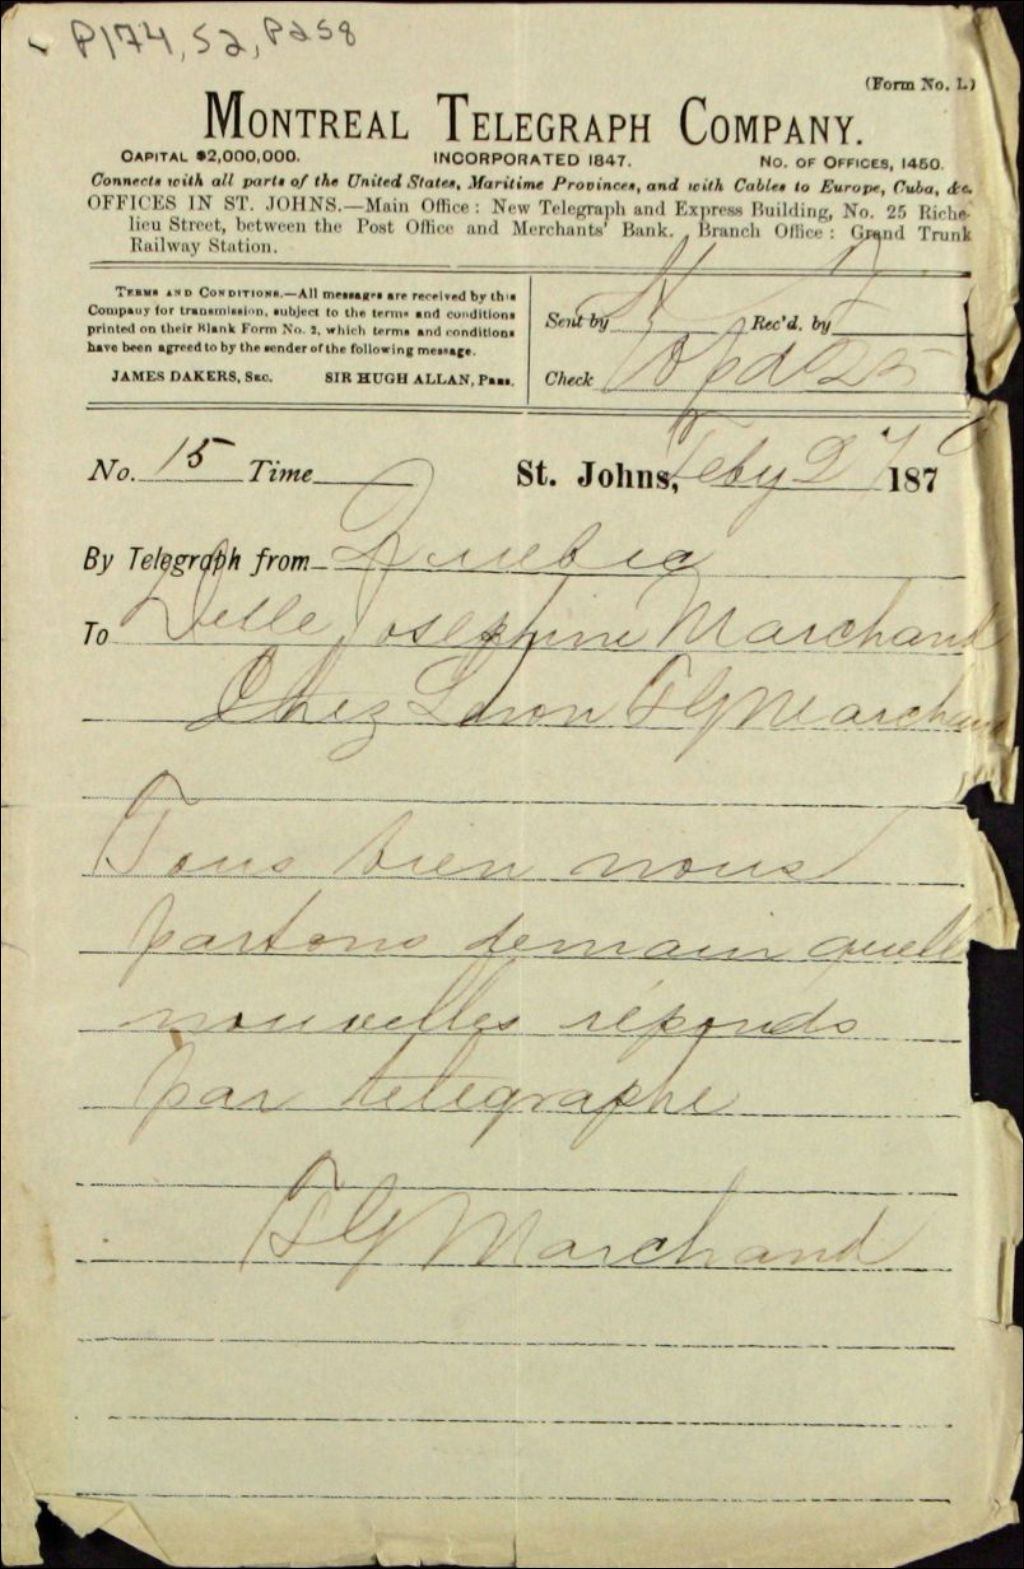 P174, S2, P258
(Form No. 1.)
MONTREAL TELEGRAPH COMPANY.
CAPITAL $2,000,000. INCORPORATED 1847. NO. OF OFFICES, 1450.
Connects with all parts of the United States, Maritime Provinces, and with Cables to Europe, Cuba, &c.
OFFICES IN ST. JOHNS.—Main Office: New Telegraph and Express Building, No. 25 Riche-
lieu Street, between the Post Office and Merchants' Bank. Branch Office: Grand Trunk
Railway Station.
TERMS AND CONDITIONS.—All messages are received by this
Company for transmission, subject to the terms and conditions
printed on their Blank Form No. 2, which terms and conditions
have been agreed to by the sender of the following message.
JAMES DAKERS, SEC. SIR HUGH ALLAN, PRES.
Sent by Rec'd. by
Check
No. 15 Time St. Johns, Feby 27 187
By Telegraph from Quebec
To Delle Josephine Marchand
Chez FG Marchand
Tous bien nous
partons demain quell
nouvelles réponds
par telegraphe
FG Marchand